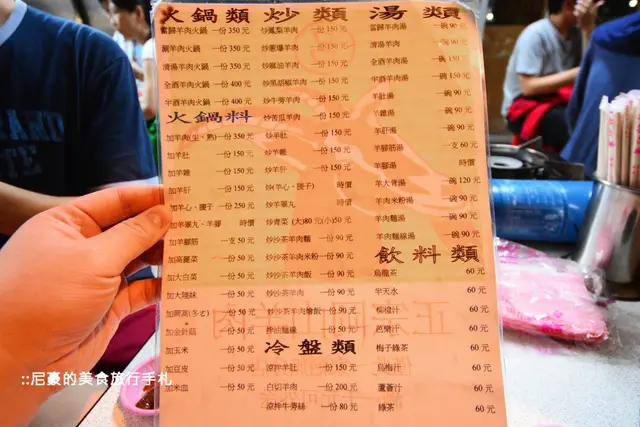 火鍋類
當歸羊肉火鍋 一份 350 元
涮羊肉火鍋 一份 350 元
清湯羊肉火鍋 一份 350 元
全酒羊肉火鍋 一份 400 元
半酒羊肉火鍋 一份 400 元
火鍋料
加羊肉(生、熟) 一份 350 元
加羊肚 一份 150 元
加羊雜 一份 150 元
加羊肝 一份 150 元
加羊心、腰子 一份 250 元
加羊睪丸、羊腳 時價
加羊腳筋 一支 50 元
加高麗菜 一份 50 元
加大白菜 一份 50 元
加大陸妹 一份 50 元
加茼蒿(多む) 一份 50 元
加金針菇 一份 50 元
加玉米 一份 50 元
加豆皮 一份 50 元
加米血 一份 50 元
炒類
炒鳳梨羊肉 一份 150 元
炒蔥爆羊肉 一份 150 元
炒麻油羊肉 一份 150 元
炒黑胡椒羊肉 一份 150 元
炒牛蒡羊肉 一份 150 元
炒苦瓜羊肉 一份 150 元
炒羊肚 一份 150 元
炒羊雜 一份 150 元
炒羊肝 一份 150 元
炒(羊心、腰子) 時價
炒羊睪丸 時價
炒青菜 (大)80 元(小)50 元
炒沙茶羊肉麵 一份 90 元
炒沙茶羊肉米粉 一份 90 元
炒沙茶羊肉飯 一份 90 元
炒沙茶羊肉 一份 90 元
炒沙茶羊肉燴飯 一份 90 元
拌油麵線 一份 50 元
冷盤類
涼拌羊肚 一份 150 元
白切羊肉 一份 200 元
涼拌牛蒡絲 一份 80 元
湯類
當歸羊肉湯 一碗 90 元
清湯羊肉 一碗 90 元
全酒羊肉湯 一碗 150 元
半酒羊肉湯 一碗 150 元
羊肚湯 一碗 90 元
羊雜湯 一碗 90 元
羊肝湯 一碗 90 元
羊腳筋湯 一支 60 元
羊腳湯 時價
羊大骨湯 一碗 120 元
羊肉米粉湯 一碗 90 元
羊肉麵湯 一碗 90 元
羊肉麵線湯 一碗 90 元
飲料類
烏龍茶 60 元
半天水 60 元
柳橙汁 60 元
芭樂汁 60 元
梅子綠茶 60 元
烏梅汁 60 元
蘆薈汁 60 元
綠茶 60 元
::尼豪的美食旅行手札